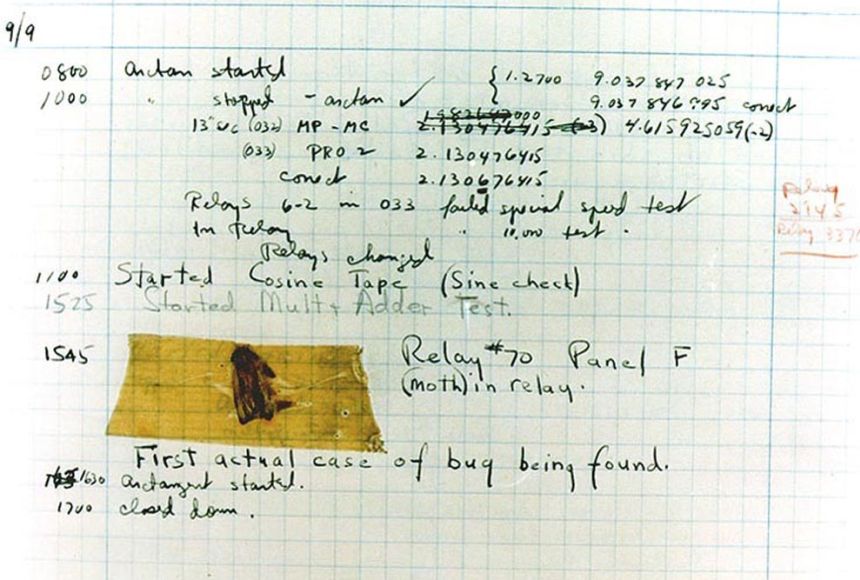 9/9
0800 arctan started { 1.2700 9.037 847 025
1000 " stopped - arctan ✓ 9.037 846 995 correct
13" uc (032) MP - MC 2.130476415 (-3) 4.615925059(-2)
(033) PRO 2 2.130476415
correct 2.130676415
Relays 6-2 in 033 failed special speed test
In relay " 10.000 test .
Relays changed
Relay
2145
Relay 3370
1100 Started Cosine Tape (Sine check)
1525 Started Mult + Adder Test.
1545 Relay #70 Panel F
(moth) in relay.
First actual case of bug being found.
1630 arctangent started.
1700 closed down .